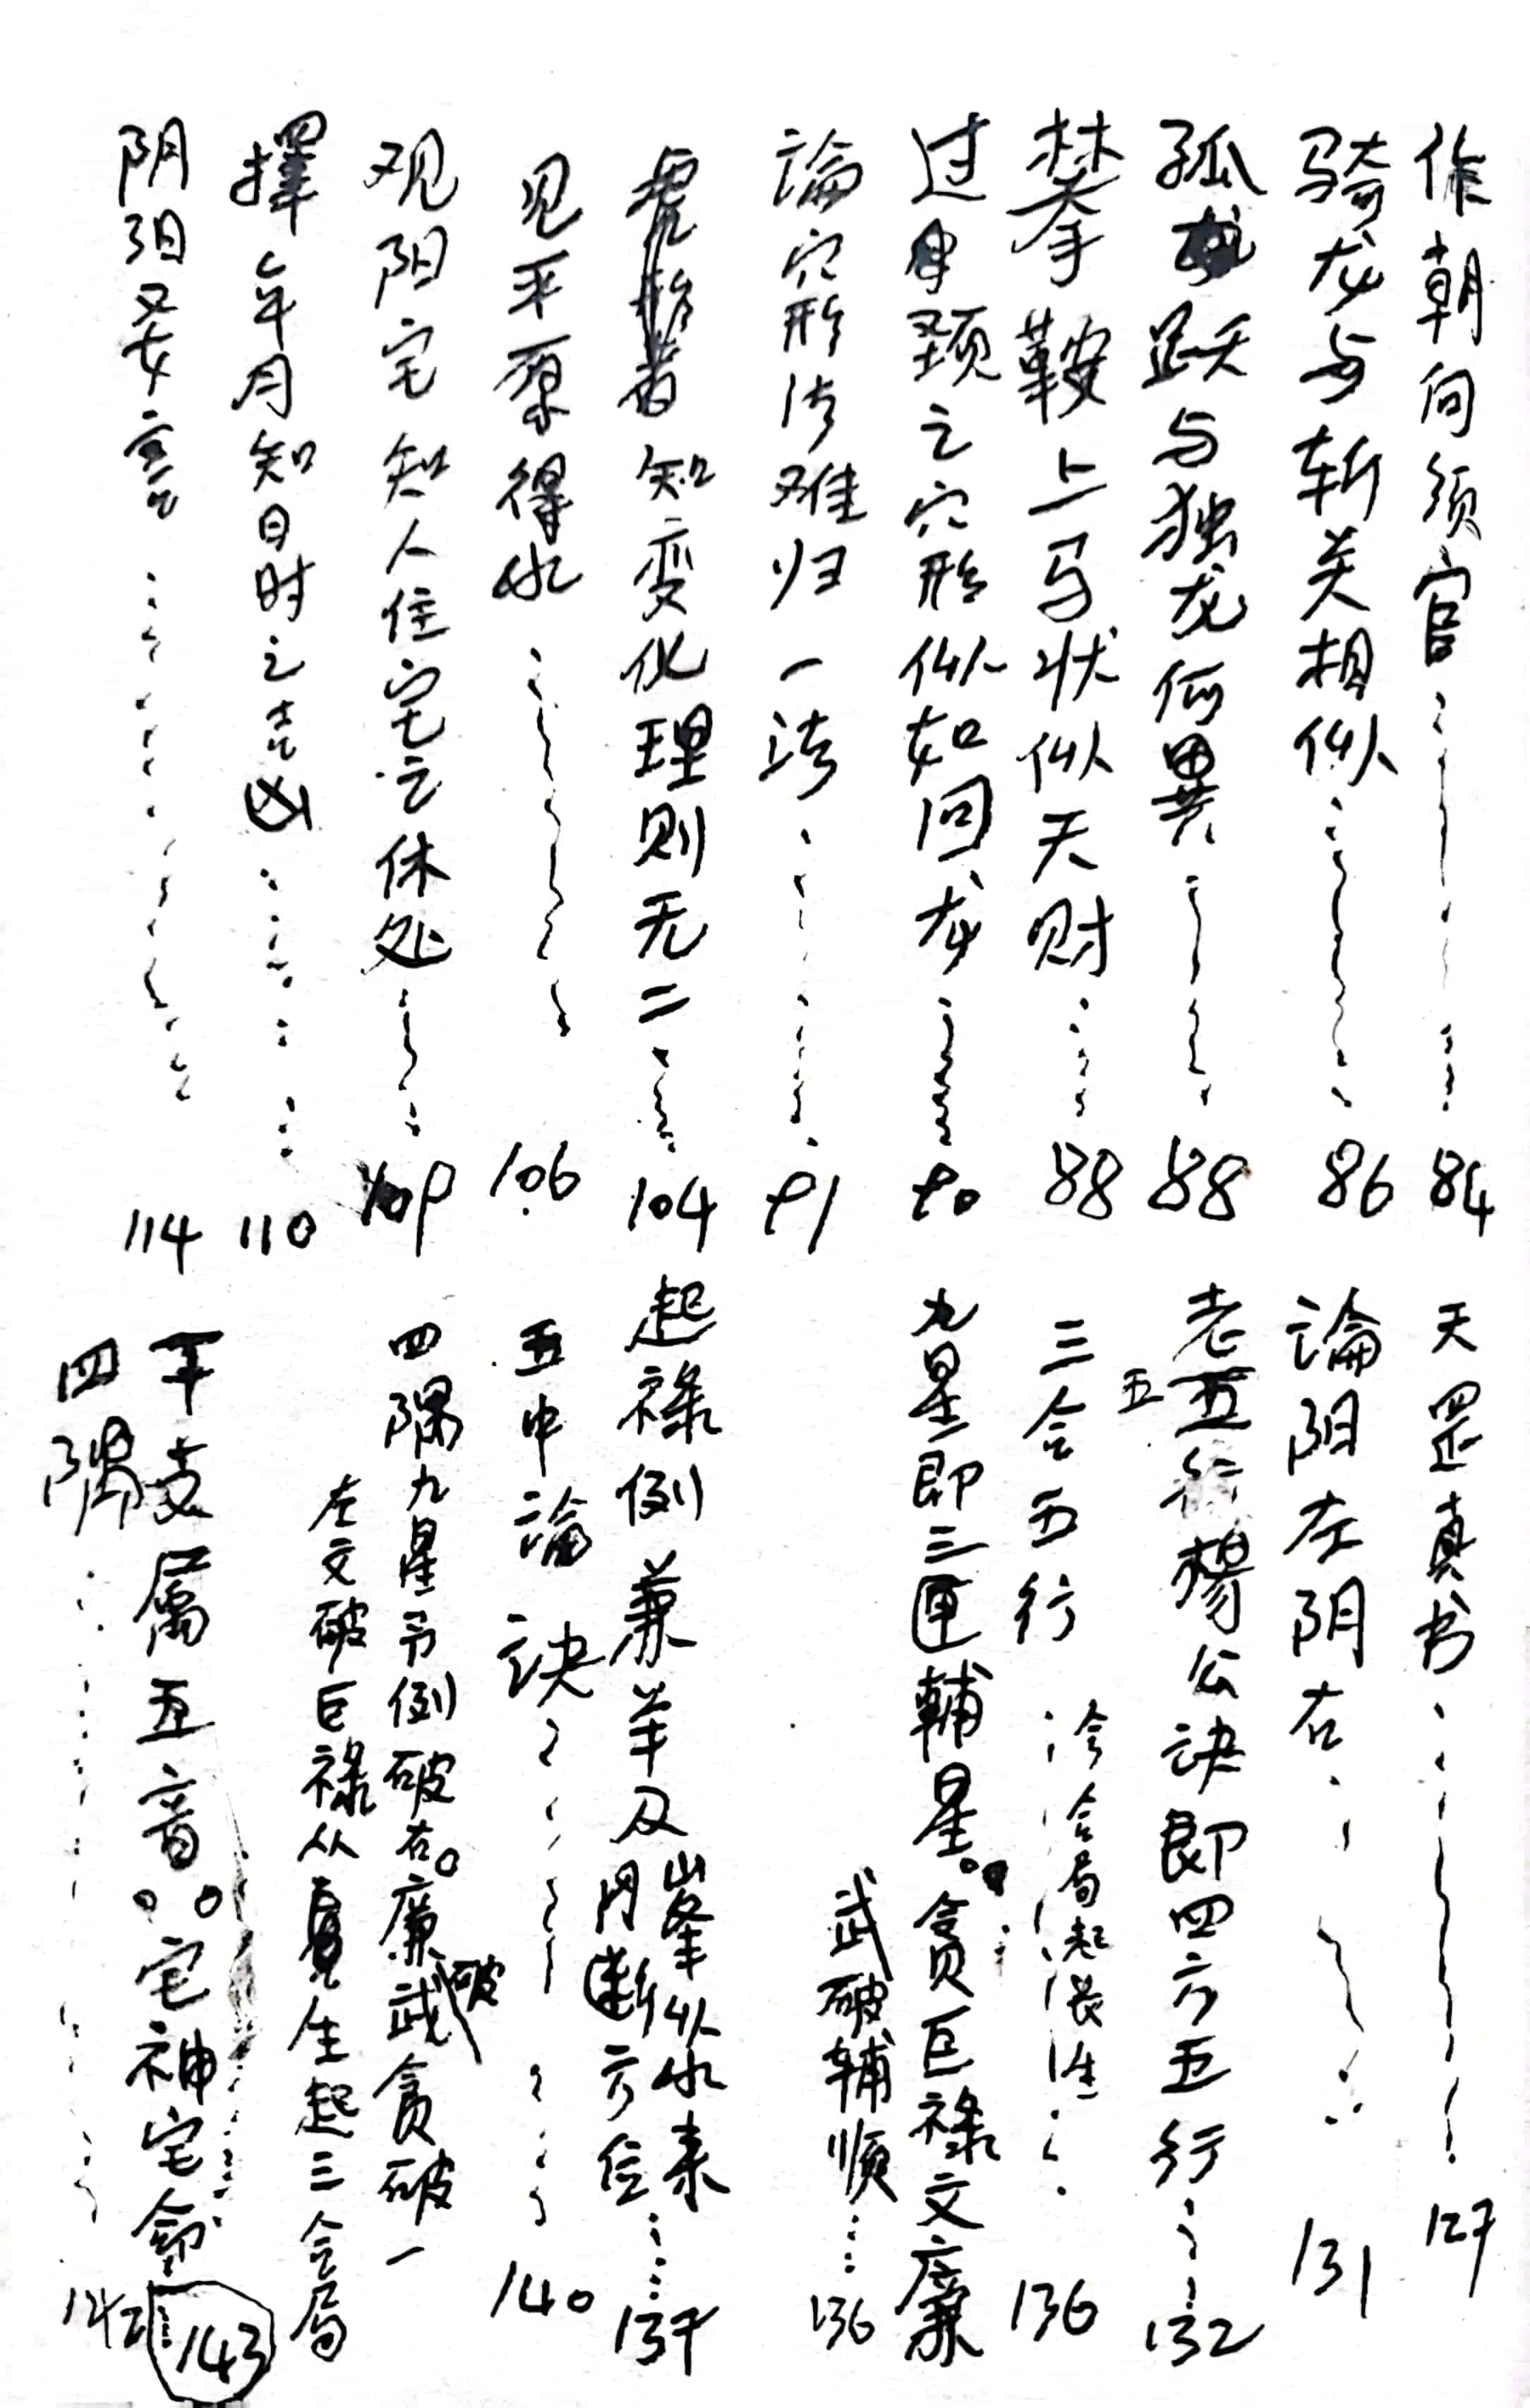 作朝向须官 84
骑龙与斩关相似 86
孤龙跃与独龙何異 88
攀鞍上马状似天财 88
过身颈之穴形似如回龙 90
論穴形法难归一法 91
者知变化理则无二 104
见平原得水 106
观阳宅知人住宅之休处 109
擇年月知日时之吉凶 110
阴阳要言 114
天罡真书 127
論阳左阴右 131
老五行楊公诀即四六五行 132
三合五行 冷合局起長生 136
九星即三匣輔星。貪巨祿文廉
武破輔順 136
起祿例兼羊及峯从水素
門断方位 137
五申論诀 140
四隅九星号例破右。廉武破貪破一
左文破巨祿从長生起三合局
干支屬五音。宅神宅命 143
四隅 142